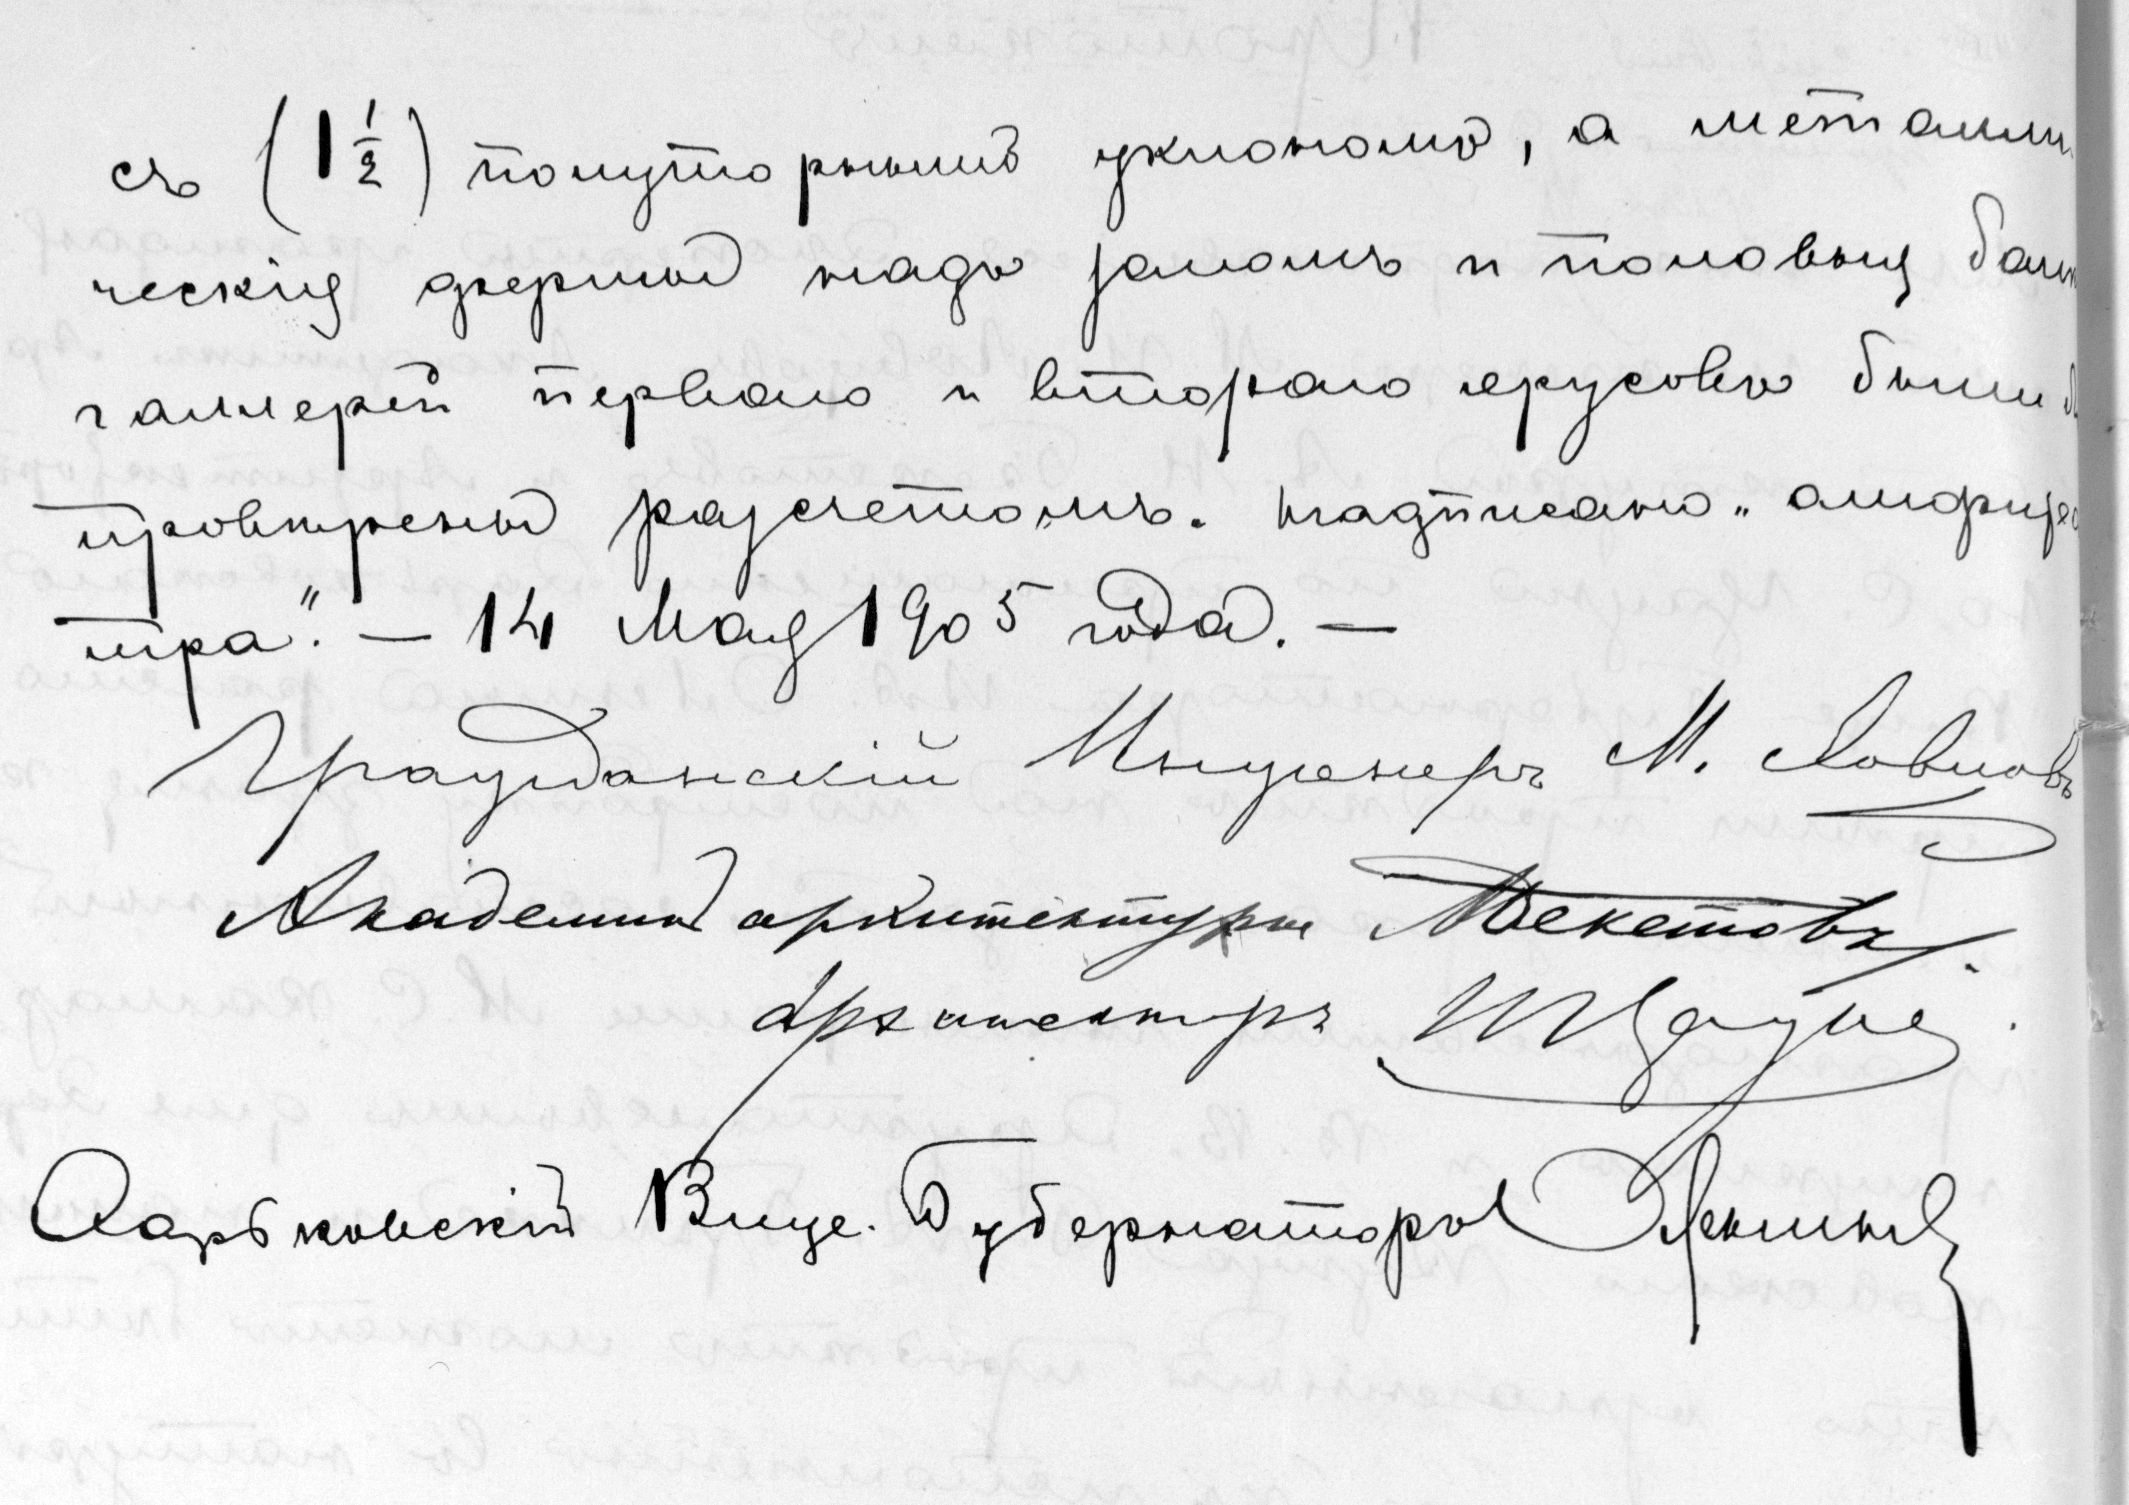 съ (1 1/2) полуторнымъ уклономъ, а металли-
ческія фермы надъ заломъ и половыя балк
галлерей перваго и втораго ярусовъ были
провѣрены разсчетомъ. Надписано „амфитеа
тра“. — 14 Мая 1905 года. —
Гражданскій Инженеръ М. Ловцовъ
Академикъ архитектуры АБекетовъ.
Архитекторъ Ю Цауне
Харьковскій Вице-Губернаторъ